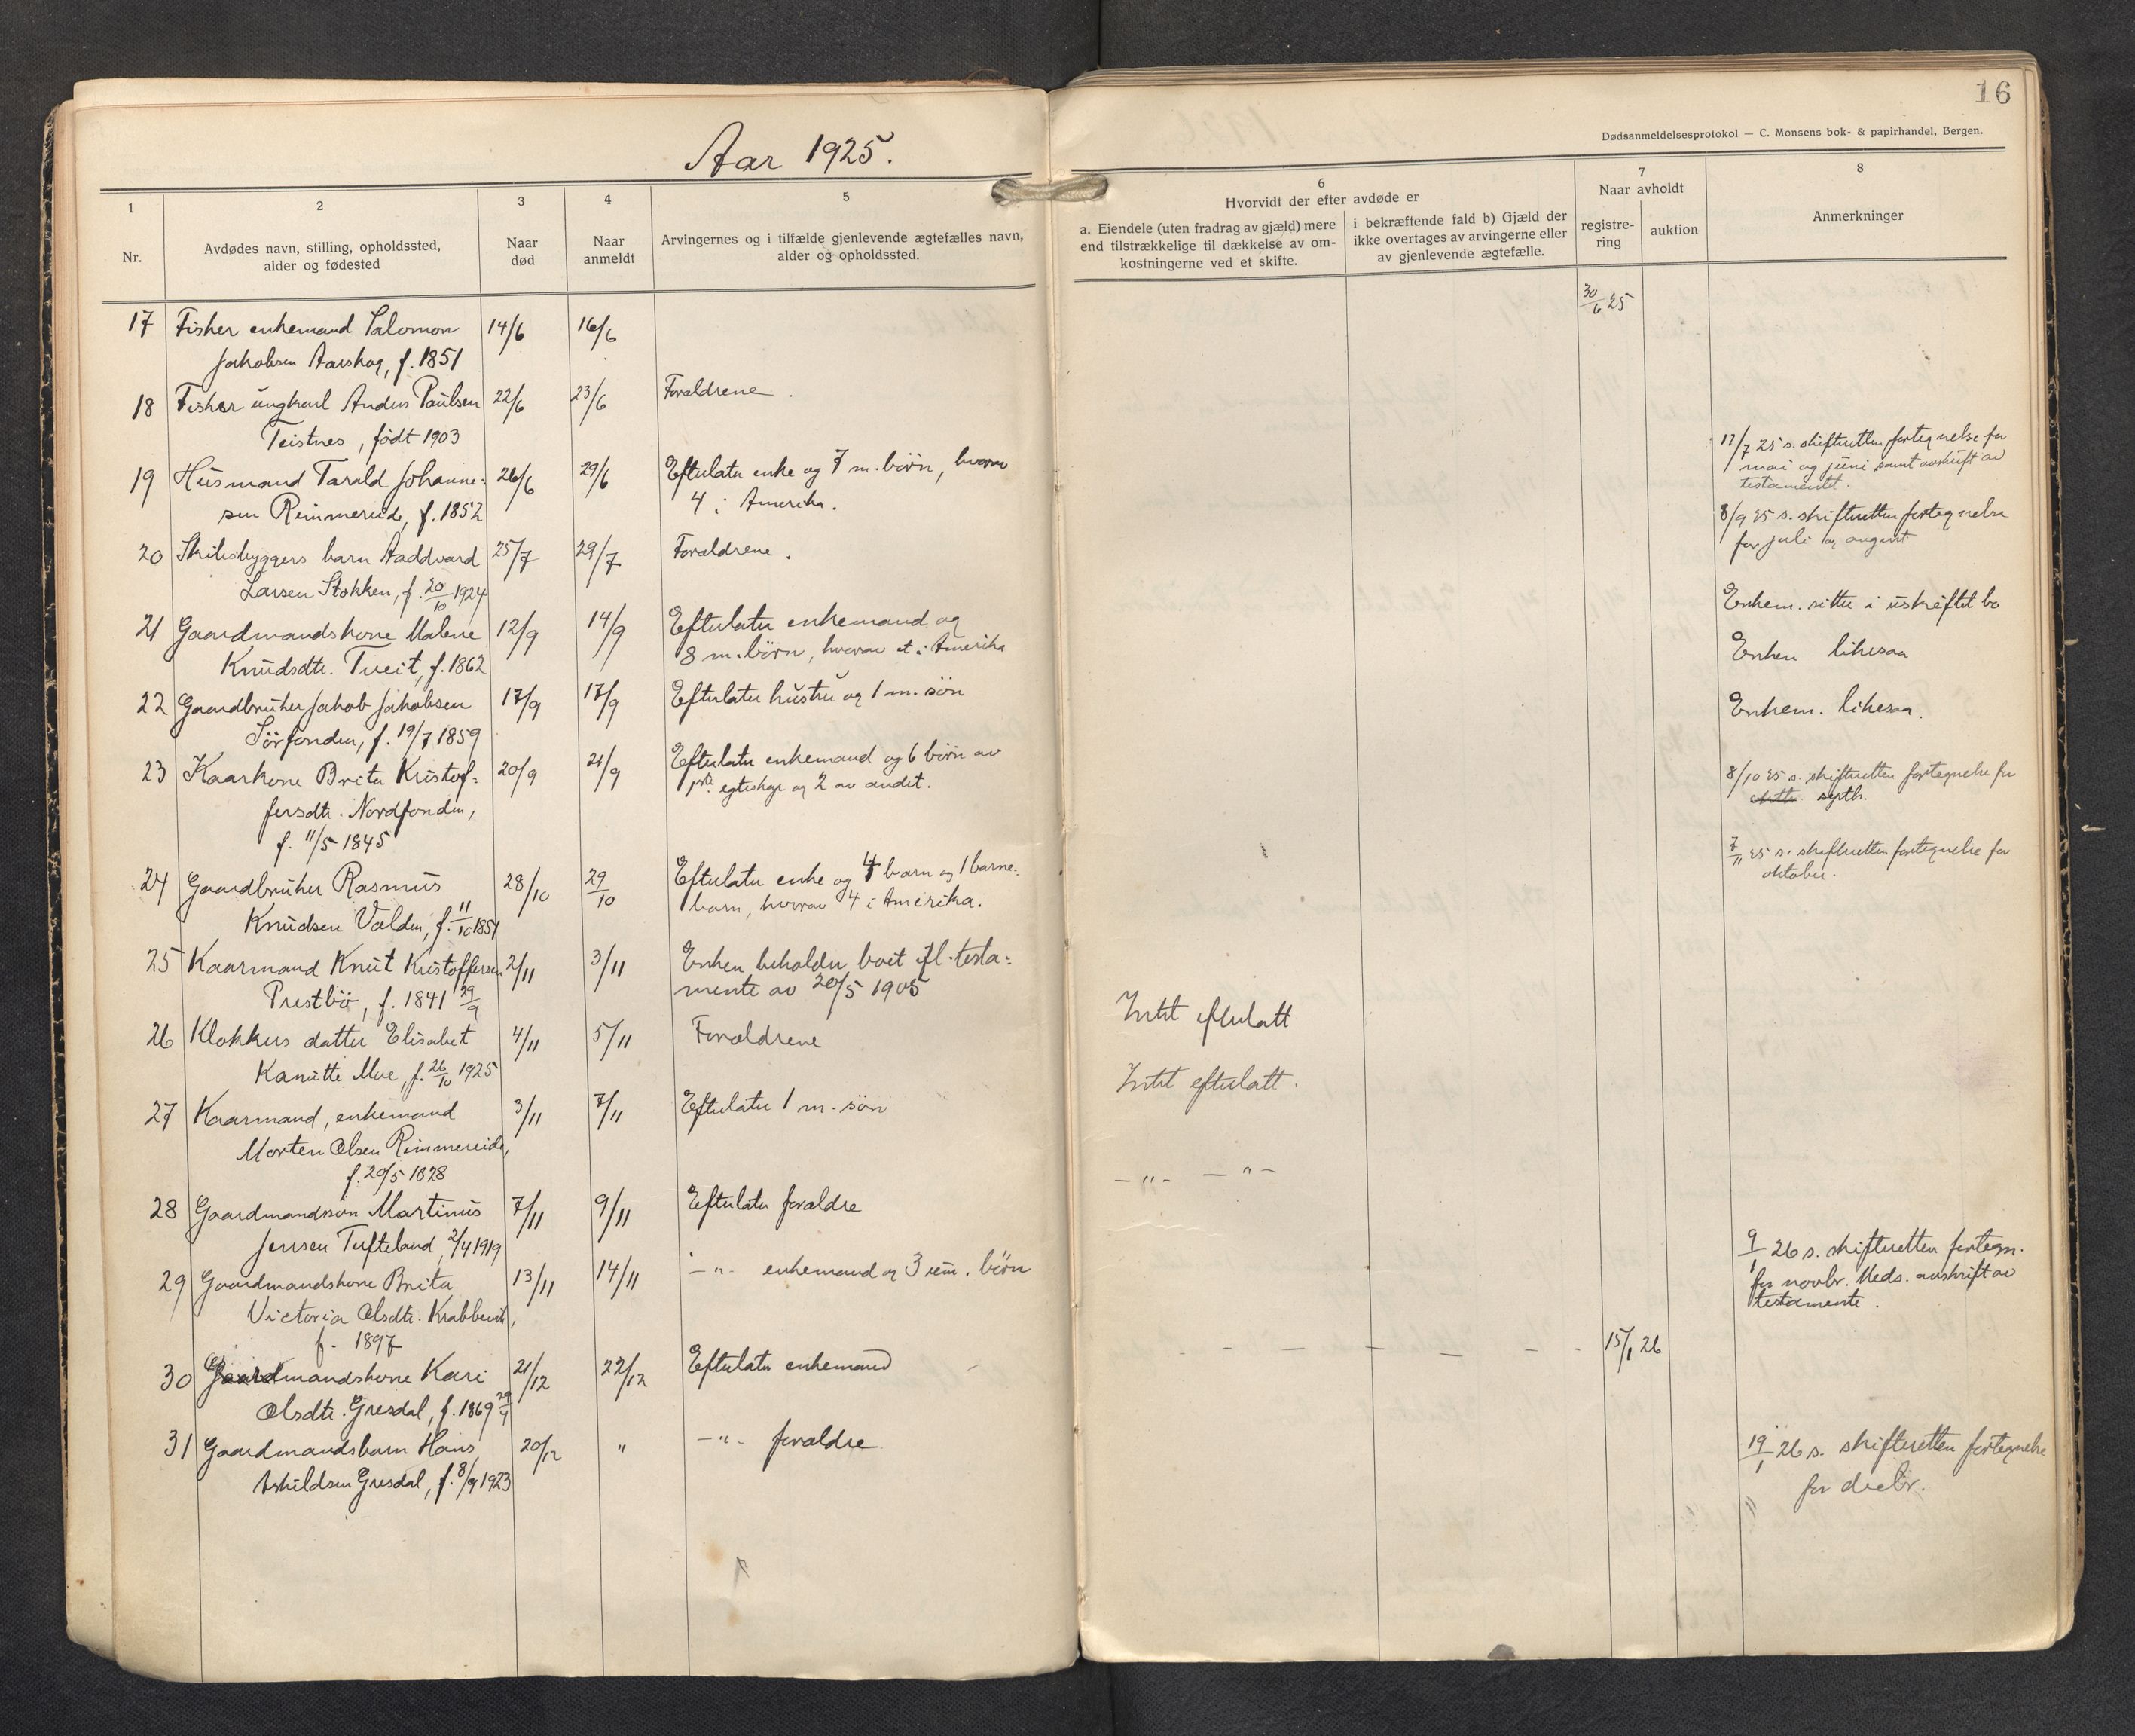 16
Dødsanmeldelsesprotokol — C. Monsens bok- & papirhandel, Bergen.
Aar 1925.
1
Nr.
2
Avdødes navn, stilling, opholdssted,
alder og fødested
3
Naar
død
4
Naar
anmeldt
5
Arvingernes og i tilfælde gjenlevende ægtefælles navn,
alder og opholdssted.
6
Hvorvidt der efter avdøde er
a. Eiendele (uten fradrag av gjæld) mere
end tilstrækkelige til dækkelse av om-
kostningerne ved et skifte.
i bekræftende fald b) Gjæld der
ikke overtages av arvingerne eller
av gjenlevende ægtefælle.
7
Naar avholdt
registre-
ring
auktion
8
Anmerkninger
17 Fisker enkemand Salomon 14/6 16/6 30/6 25
Jakobsen Aarskog, f. 1851
18 Fisker ungkarl Anders Paulsen 22/6 23/6 Forældrene.
Teistnes, født 1903
19 Husmand Tarald Johanne= 26/6 29/6 Efterlater enke og 7 m. börn, hvorav
sen Rimmereide, f. 1852 4 i Amerika.
20 Skibsbyggers barn Aadvard 25/7 29/7 Forældrene.
Larsen Stokken, f. 20/10 1924
21 Gaardmandskone Malene 12/9 14/9 Efterlater enkemand og
Knudsdtr. Tveit, f. 1862 8 m. börn, hvorav et i Amerika
22 Gaardbruker Jakob Jakobsen 17/9 17/9 Efterlater hustru og 1 m. sön
Sörfonden, f. 19/7 1859
23 Kaarkone Brita Kristof= 20/9 21/9 Efterlater enkemand og 6 börn av
fersdtr. Nordfonden, egteskap og 2 av andet.
f. 11/5 1845
24 Gaardbruker Rasmus 28/10 29/10 Efterlater enke og 4 barn og 1 barne-
Knudsen Valden, f. 11/10 1851 barn, hvorav 4 i Amerika.
25 Kaarmand Knut Kristoffersen 2/11 3/11 Enken beholder boet ifl. testa=
Prestbö, f. 1841 29/9 mente av 20/5 1905
26 Klokkers datter Elisabet 4/11 5/11 Forældrene
Kanutte Moe, f. 26/10 1925
27 Kaarmand, enkemand 3/11 7/11 Efterlater 1 m. sön
Morten Olsen Rimmereide,
f. 20/5 1828
28 Gaardmandssön Martinus 7/11 9/11 Efterlater forældre
Jensen Tufteland, 2/4 1919
29 Gaardmandskone Brita 13/11 14/11 -"- enkemand og 3 um. börn
Victoria Olsdtr. Krabbevik,
f. 1897
30 Gaardmandskone Kari 21/12 22/12 Efterlater enkemand
Olsdtr. Gresdal, f. 1869
31 Gaardmandsbarn Hans 20/12 " -"- forældre
Gresdal, f. 8/9 1923
Intet efterlatt
Intet efterlatt.
-"- -"-
15/1 26
17/7 25 s. skifteretten fortegnelse for
mai og juni samt avskrift av
testamentet.
8/9 25 s. skifteretten fortegnelse
for juli og august
Enkem. sitter i uskiftet bo
Enken likesaa
Enkem. likesaa.
8/10 25 s. skifteretten fortegnelse for
septb.
7/11 25 s. skifteretten fortegnelse for
oktober.
9/1 26 s. skifteretten fortegn.
for novbr. Meds. avskrift av
testamente.
19/1 26 s. skifteretten fortegnelse
for decbr.